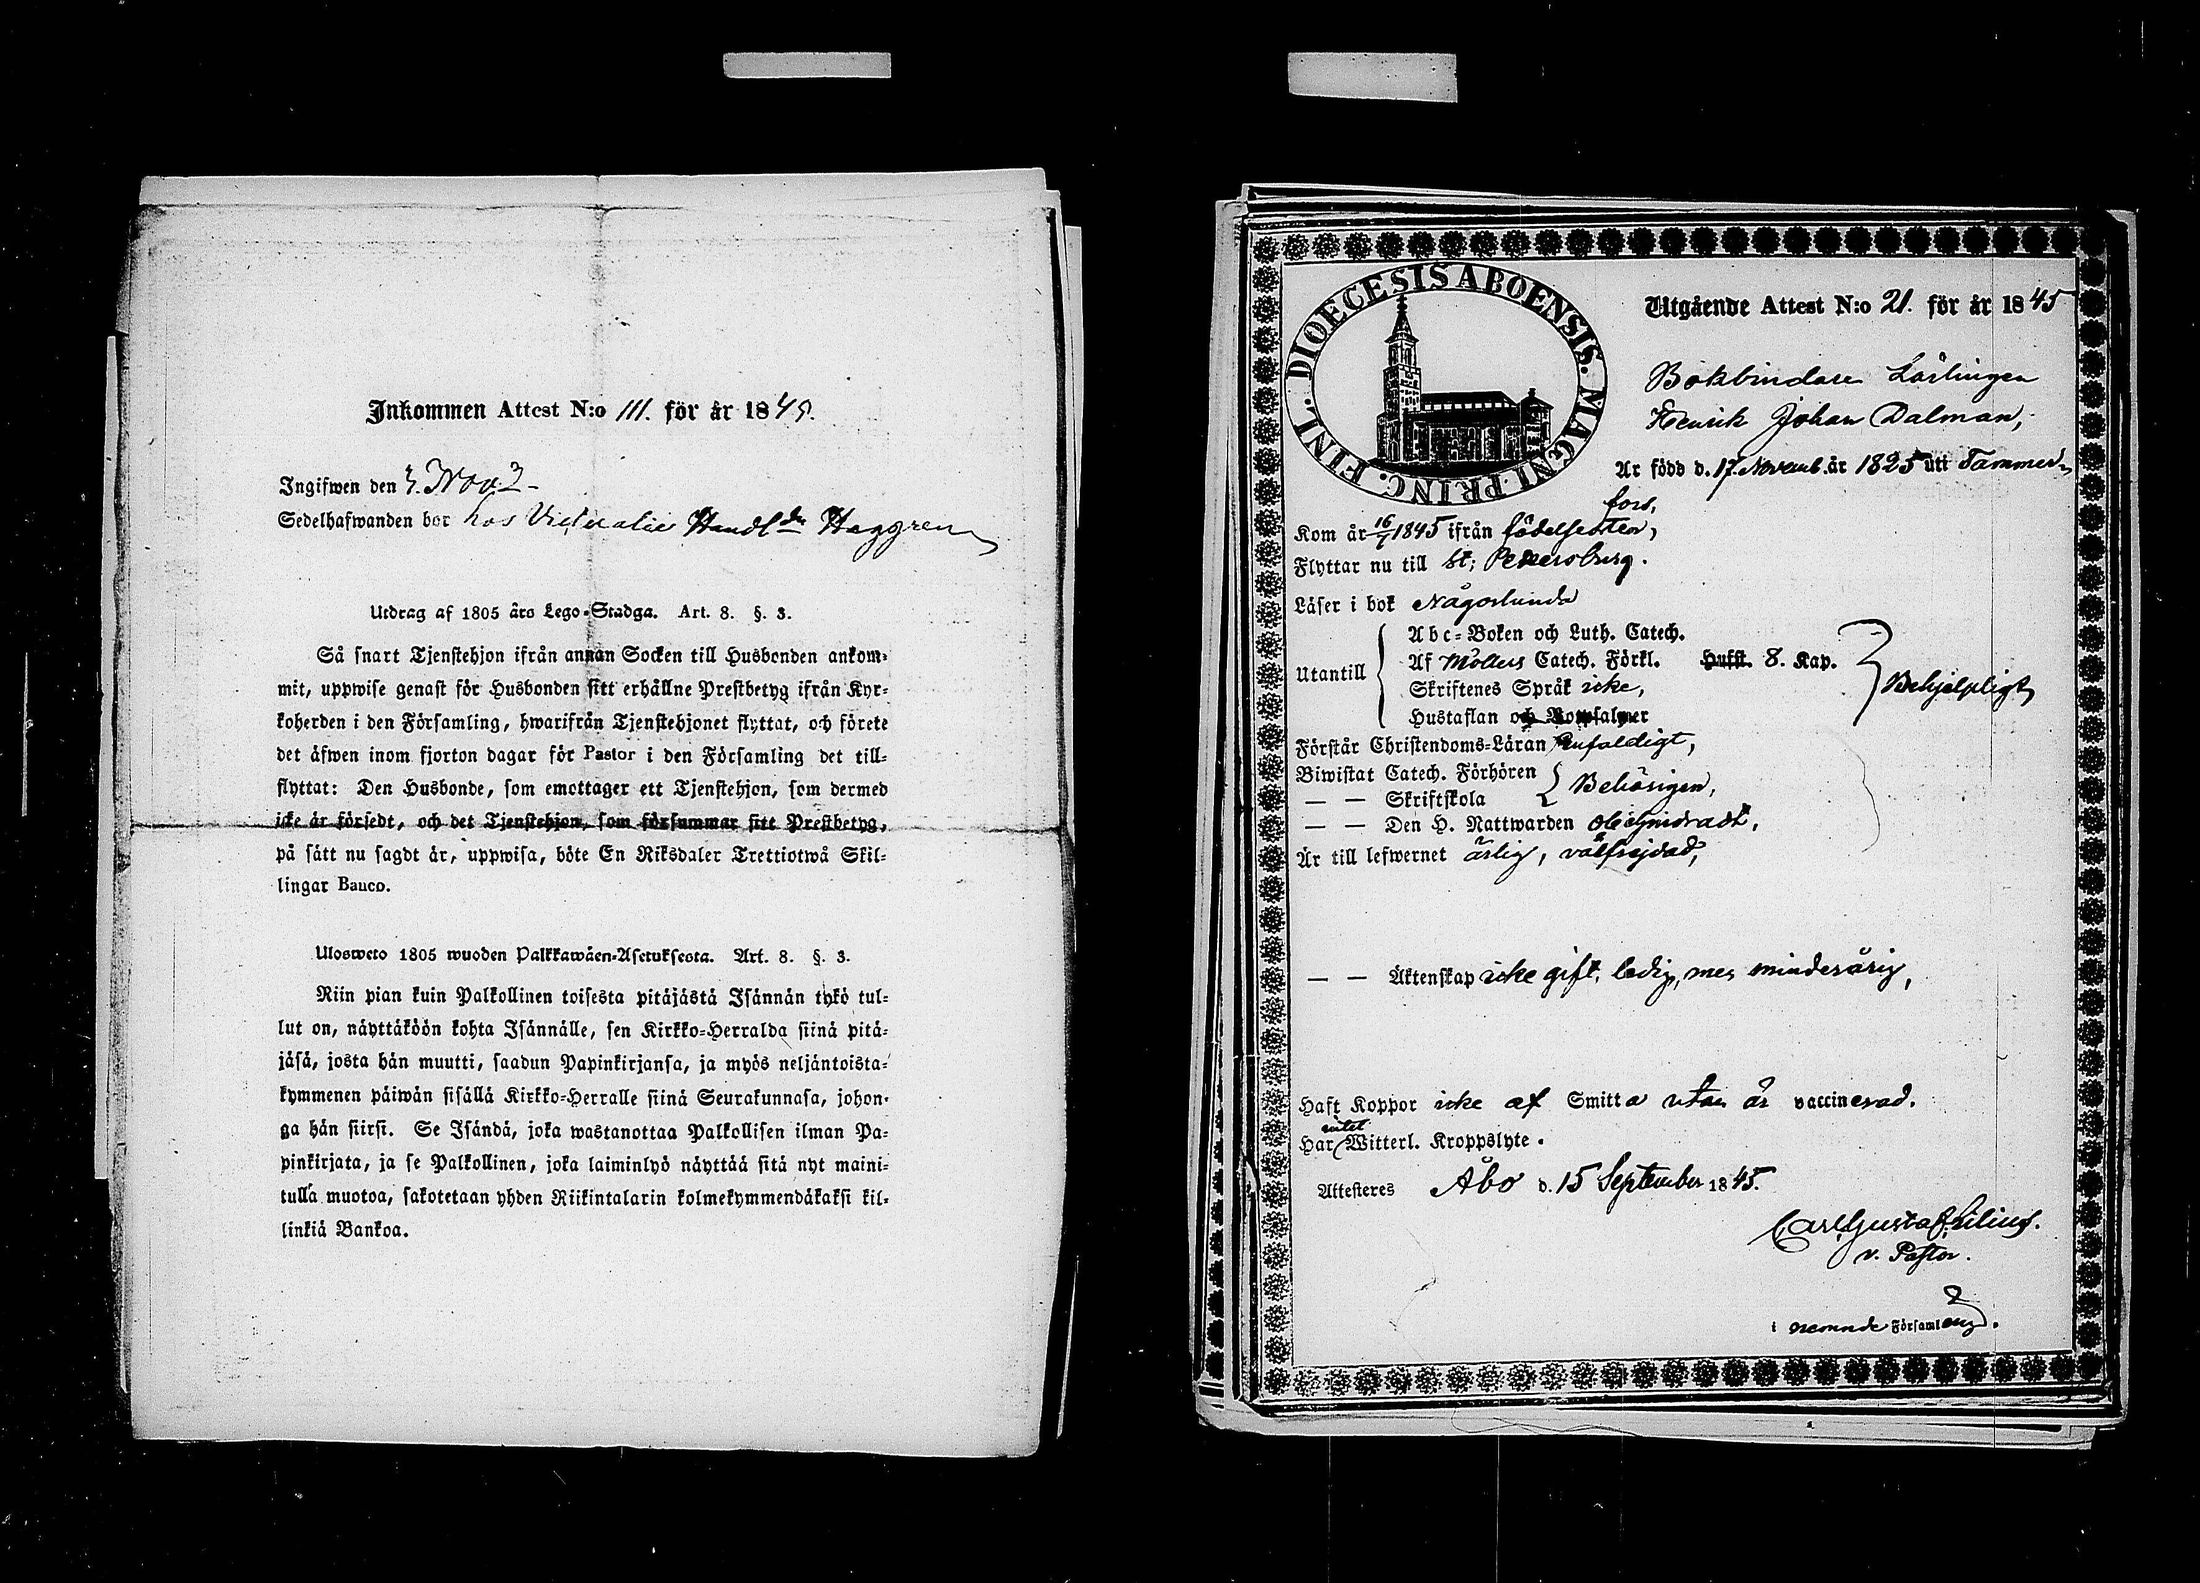 Inkommen Attest N:o 111. för år 1845.
Ingifwen den 3. Nov?
Sedelhafwanden bor hos Victualie Handl Haggren
Utdrag af 1805 års Lego-Stadga. Art. 8. §. 3.
Så snart Tjenstehjon ifrån annan Socken till Husbonden ankom-
mit, uppwise genast för Husbonden sitt erhållne Prestbetyg ifrån Kyr-
koherden i den Församling, hwarifrån Tjenstehjonet flyttat, och förete
det äfwen inom fjorton dagar för Pastor i den Församling det till-
flyttat: Den Husbonde, som emottager ett Tjenstehjon, som dermed
icke är försedt, och det Tjenstehjon, som försummar sitt Prestbetyg,
på sätt nu sagdt är, uppwisa, böte En Riksdaler Trettiotwå Skil-
lingar Banco.
Ulosweto 1805 wuoden Palkkawäen-Asetuksesta. Art. 8. §. 3.
Niin pian kuin Palkollinen toisesta pitäjästä Isännän tykö tul-
lut on, näyttäköön kohta Isännälle, sen Kirkko-Herralda siinä pitä-
jäsä, josta hän muutti, saadun Papinkirjansa, ja myös neljäntoista-
kymmenen päiwän sisällä Kirkko-Herralle siinä Seurakunnasa, johon-
ga hän siirsi. Se Isändä, joka wastanottaa Palkollisen ilman Pa-
pinkirjata, ja se Palkollinen, joka laiminlyö näyttää sitä nyt maini-
tulla muotoa, sakotetaan yhden Riikintalarin kolmekymmendäkaksi kil-
linkiä Bankoa.
DIOECESIS ABOENSIS. MAGNI PRINC. FINL.
Utgående Attest N:o 21. för år 1845
Bokbindare Lärlingen
Henrik Johan Dalman,
Är född d. 17. Novemb. år 1825 uti Tammer-
fors,
Kom år 16/7 1845 ifrån födelseorten,
Flyttar nu till St; Petersburg.
Läser i bok Någorlunda
Utantill
Abc-Boken och Luth. Catech.
Af Möllers Catech. Förkl. Hufst. 8. Kap.
Skriftenes Språk icke,
Hustaflan och Botpsalmer
Behjelpligt
Förstår Christendoms-Läran Enfaldigt,
Biwistat Catech. Förhören
— — Skriftskola
Behörigen,
— — Den H. Nattwarden obehindradt,
Är till lefwernet ärlig, välfrejdad,
— — Äktenskap icke gift, ledig, men minderårig,
Haft Koppor icke af Smitta utan är vaccinerad.
intet
Har Witterl. Kroppslyte.
Attesteres Åbo d. 15 September 1845.
Carl Gustaf Lilius.
v. Pastor.
i nemnde Församling.